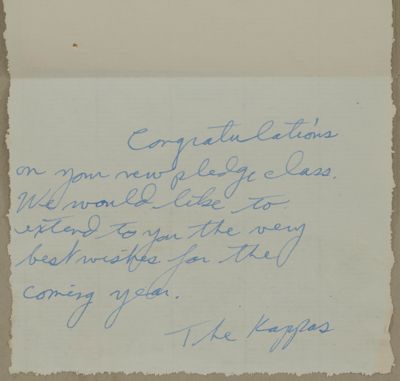 Congratulations
on your new pledge class.
We would like to
extend to you the very
best wishes for the
coming year.
The Kappas